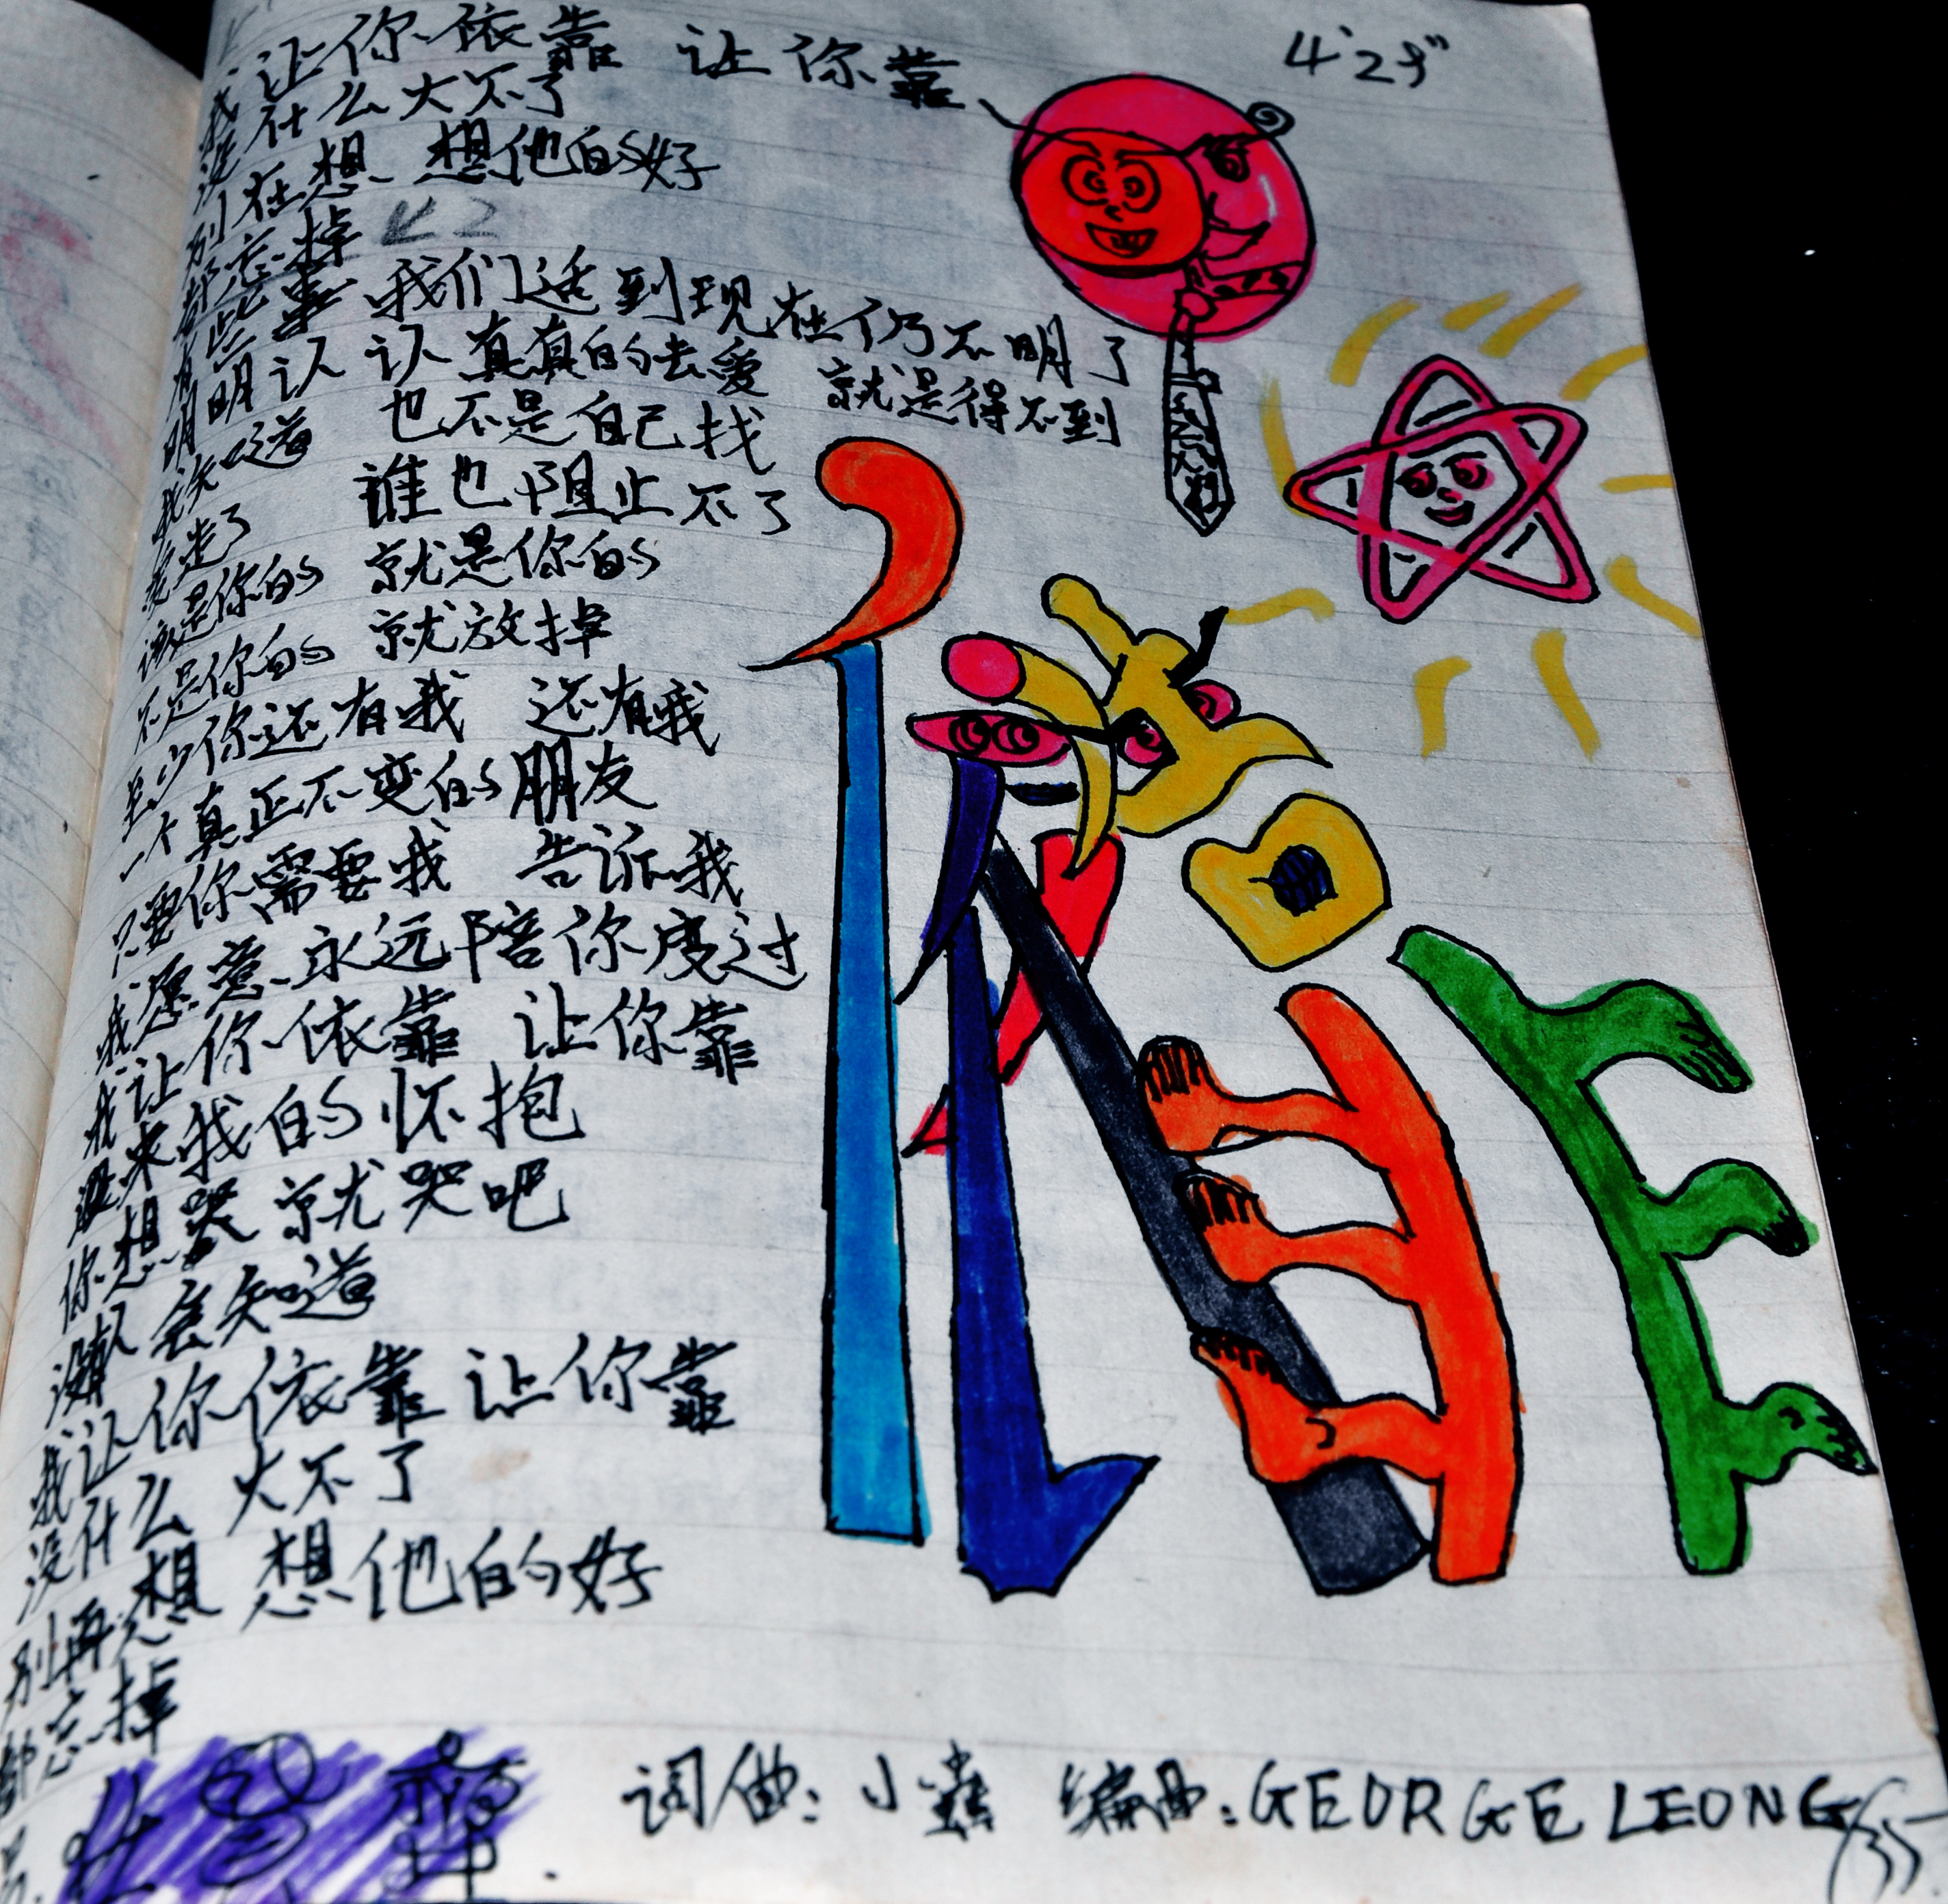 我让你依靠 让你靠 4'29"
没什么大不了
别在想 想他的好
都忘掉
有些事 我们活到现在仍不明了
明明认 认真真的去爱 就是得不到
我知道 也不是自己找
要走了 谁也阻止不了
该是你的 就是你的
不是你的 就放掉
至少你还有我 还有我
一个真正不变的朋友
只要你需要我 告诉我
我愿意永远陪你度过
我让你依靠 让你靠
过来我的怀抱
你想哭就哭吧
没有人会知道
我让你依靠 让你靠
没什么大不了
别再想 想他的好
都忘掉
依靠
词曲:小虫 编曲:GEORGE LEONG